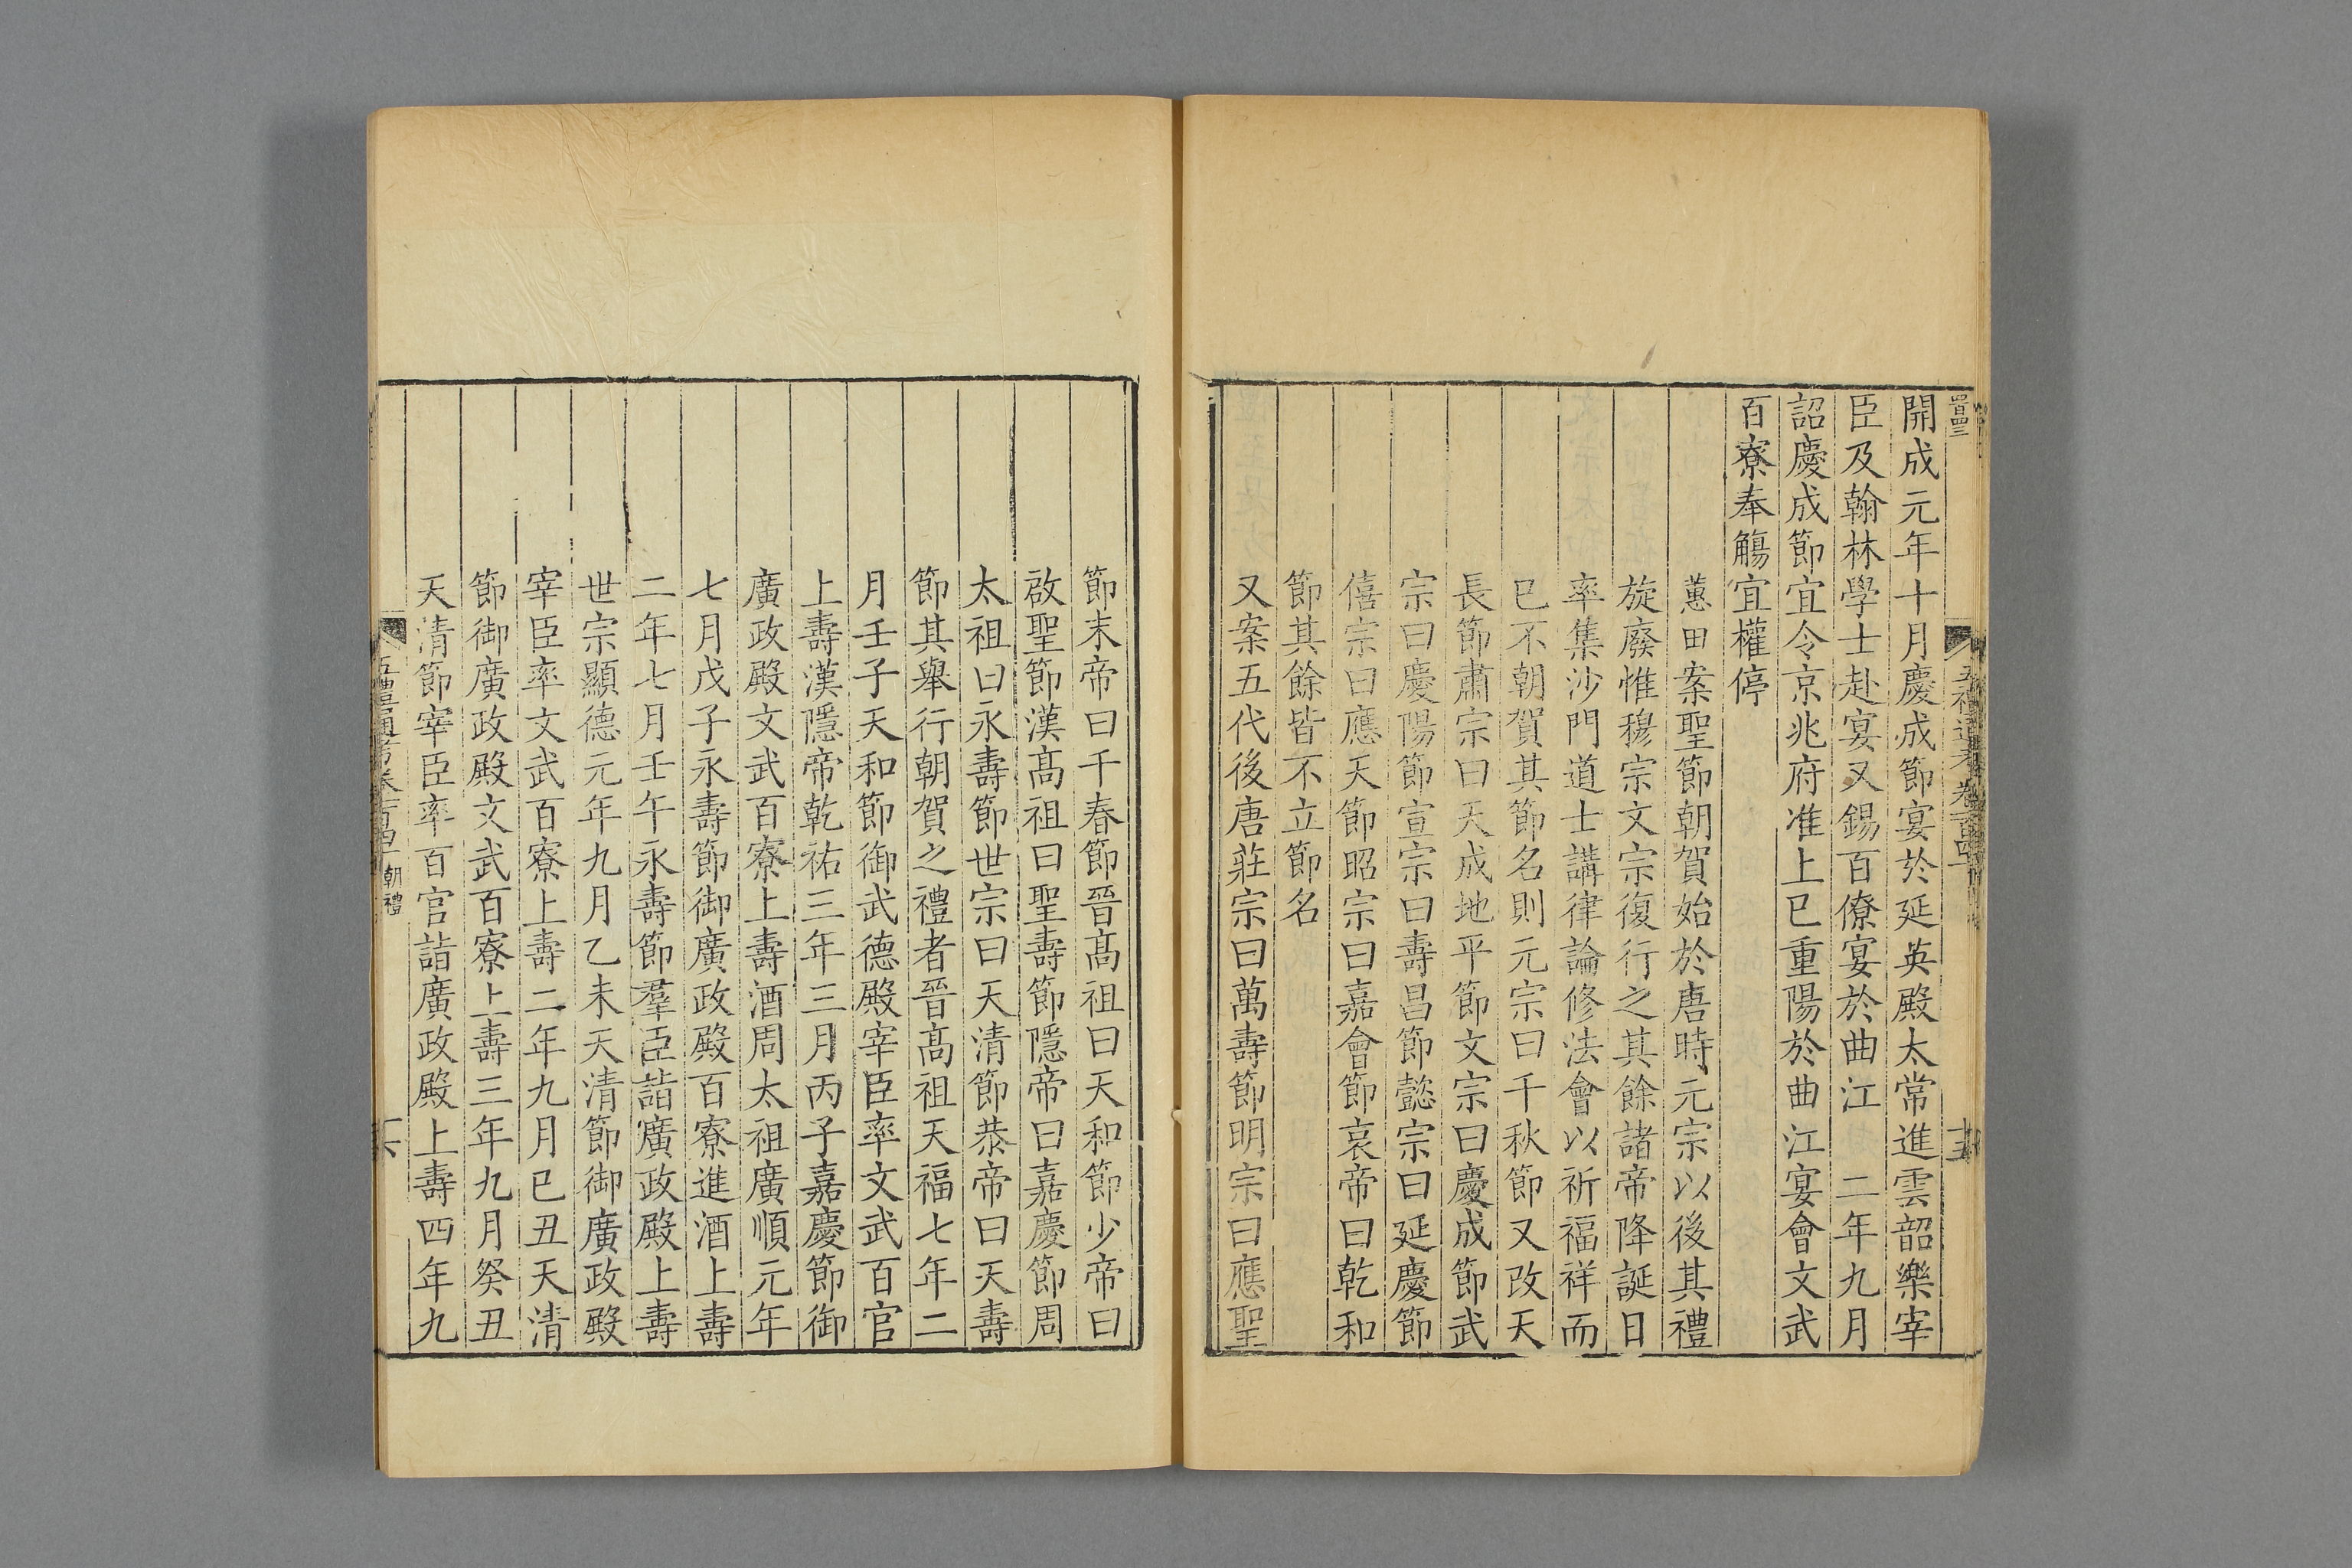 開成元年十月慶成節宴於延英殿太常進雲韶樂宰
臣及翰林學士赴宴又錫百僚宴於曲江 二年九月
詔慶成節宜令京兆府准上巳重陽於曲江宴會文武
百寮奉觴宜權停
蕙田案聖節朝賀始於唐時元宗以後其禮
旋廢惟穆宗文宗復行之其餘諸帝降誕日
率集沙門道士講律論修法會以祈福祥而
巳不朝賀其節名則元宗曰千秋節又改天
長節肅宗曰天成地平節文宗曰慶成節武
宗曰慶陽節宣宗曰壽昌節懿宗曰延慶節
僖宗曰應天節昭宗曰嘉會節哀帝曰乾和
節其餘皆不立節名
又案五代後唐莊宗曰萬壽節明宗曰應聖
節末帝曰千春節晉髙祖曰天和節少帝曰
啟聖節漢髙祖曰聖壽節隱帝曰嘉慶節周
太祖曰永壽節世宗曰天清節恭帝曰天壽
節其舉行朝賀之禮者晉髙祖天福七年二
月壬子天和節御武德殿宰臣率文武百官
上壽漢隱帝乾祐三年三月丙子嘉慶節御
廣政殿文武百寮上壽酒周太祖廣順元年
七月戊子永壽節御廣政殿百寮進酒上壽
二年七月壬午永壽節羣臣詣廣政殿上壽
世宗顯德元年九月乙未天清節御廣政殿
宰臣率文武百寮上壽二年九月巳丑天清
節御廣政殿文武百寮上壽三年九月癸丑
天清節宰臣率百官詣廣政殿上壽四年九
朝禮